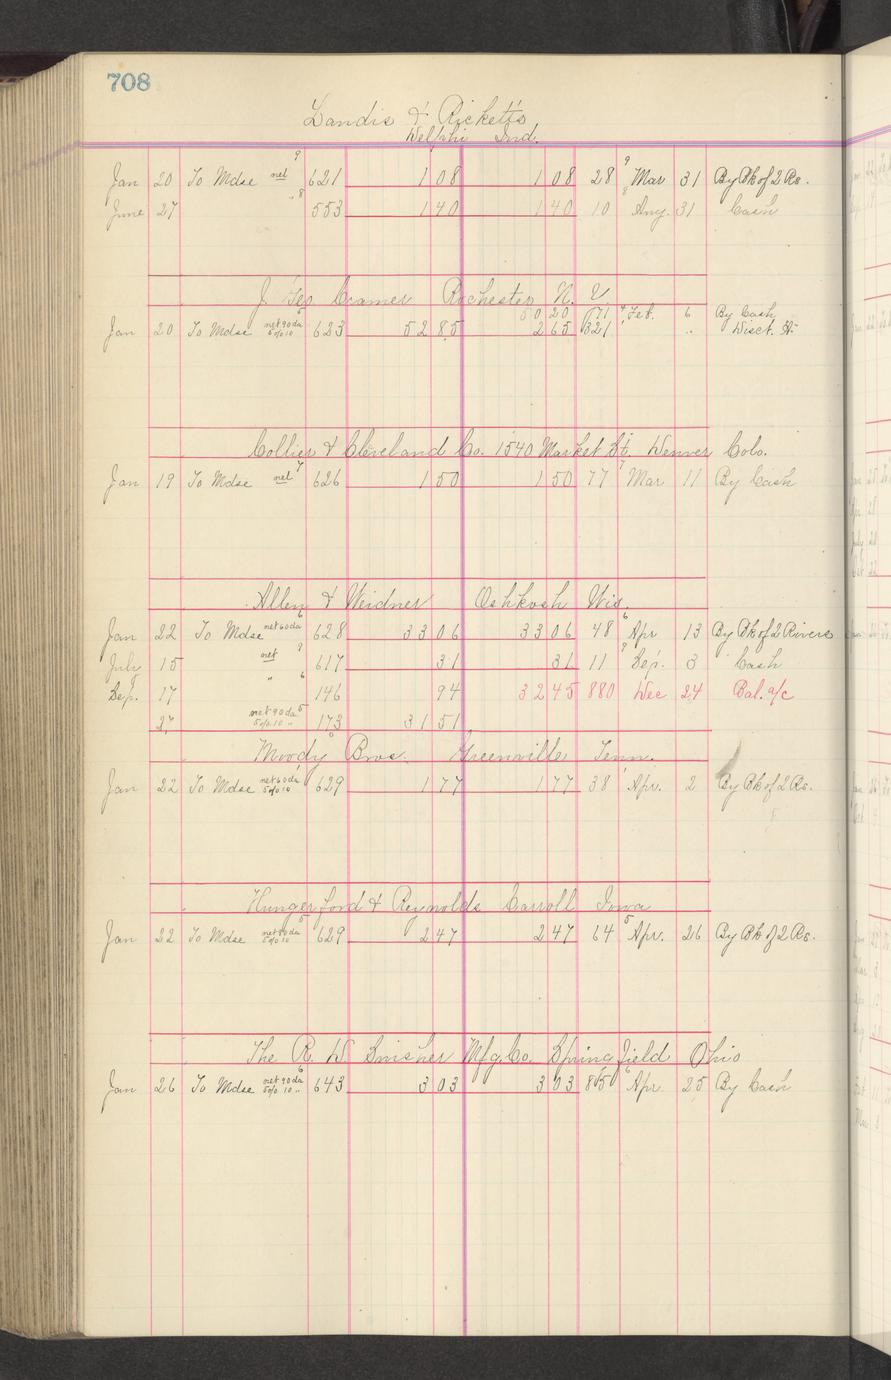 708
Landis & Rickett's
Delphi Ind.
Jan 20 To Mdse net 9 621 1 08 1 08 28 9 Mar 31 By Bk of 2 Rs.
June 27 " 8 553 1 40 1 40 10 8 Aug. 31 Cash
J. Geo. Cramer Rochester N. Y.
50 20 171 4 Feb. 6 By Cash
Jan 20 To Mdse net 90 da 5% 10 623 52 85 2 65 321 " Disct. %
Collier & Cleveland Co. 1540 Market St. Denver Colo.
Jan 19 To Mdse net 7 626 1 50 1 50 77 7 Mar 11 By Cash
Allen & Weidner Oshkosh Wis.
Jan 22 To Mdse net 60 da 6 628 33 06 33 06 48 6 Apr 13 By Bk of 2 Rivers
July 15 net 617 31 31 11 Sep. 3 Cash
Sep. 17 " 6 146 94 32 45 880 Dec 24 Bal. a/c
27 net 90 da 5 5% 10 " 173 31 51
Moody Bros. Greenville Tenn.
Jan 22 To Mdse net 60 da 5% 10 629 1 77 1 77 38 1 Apr. 2 By Bk of 2 Rs.
Hungerford & Reynolds Carroll Iowa
Jan 22 To Mdse net 90 da 5 5% 10 629 2 47 2 47 64 5 Apr. 26 By Bk of 2 Rs.
The R. W. Swisher Mfg. Co. Springfield Ohio
Jan 26 To Mdse net 90 da 6 5% 10 " 643 3 03 3 03 85 6 Apr 25 By Cash